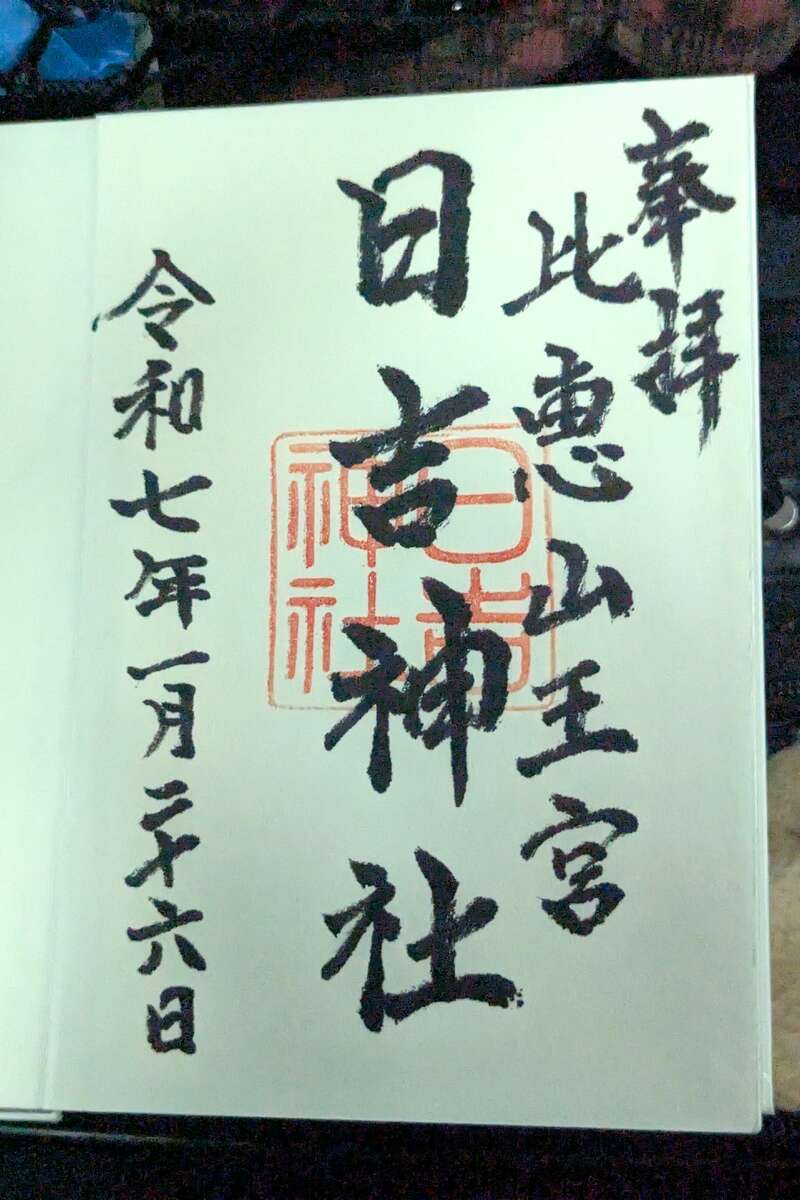 奉拝
比恵山王宮
日吉神社
日吉神社
令和七年一月二十六日